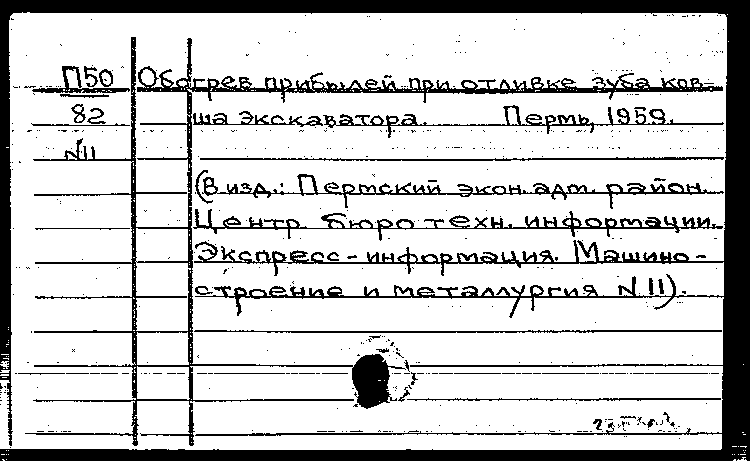 П50 Обогрев прибылей при отливке зуба ков-
82 ша экскаватора. Пермь, 1959.
N11
(В изд.: Пермский экон. адм. район.
Центр. бюро техн. информации.
Экспресс-информация. Машино-
строение и металлургия N 11).